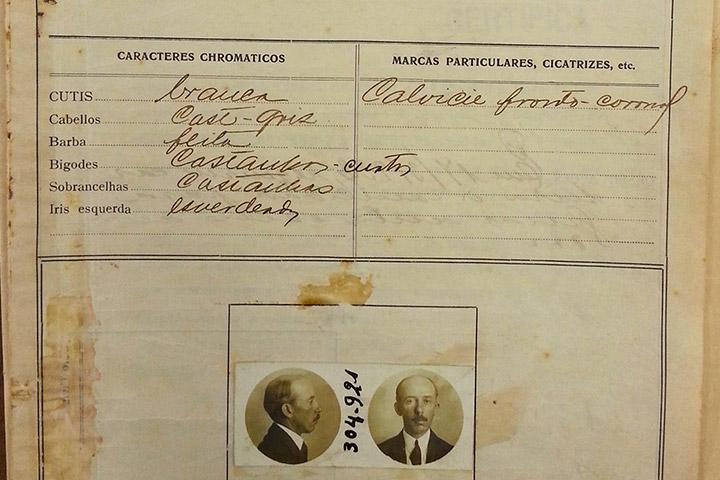 CARACTERES CHROMATICOS
MARCAS PARTICULARES, CICATRIZES, etc.
CUTIS branca
Calvicie fronto-coronal
Cabellos Cast-gris
Barba feita
Bigodes Castanhos-curtos
Sobrancelhas Castanhas
Iris esquerda esverdeada
304-921